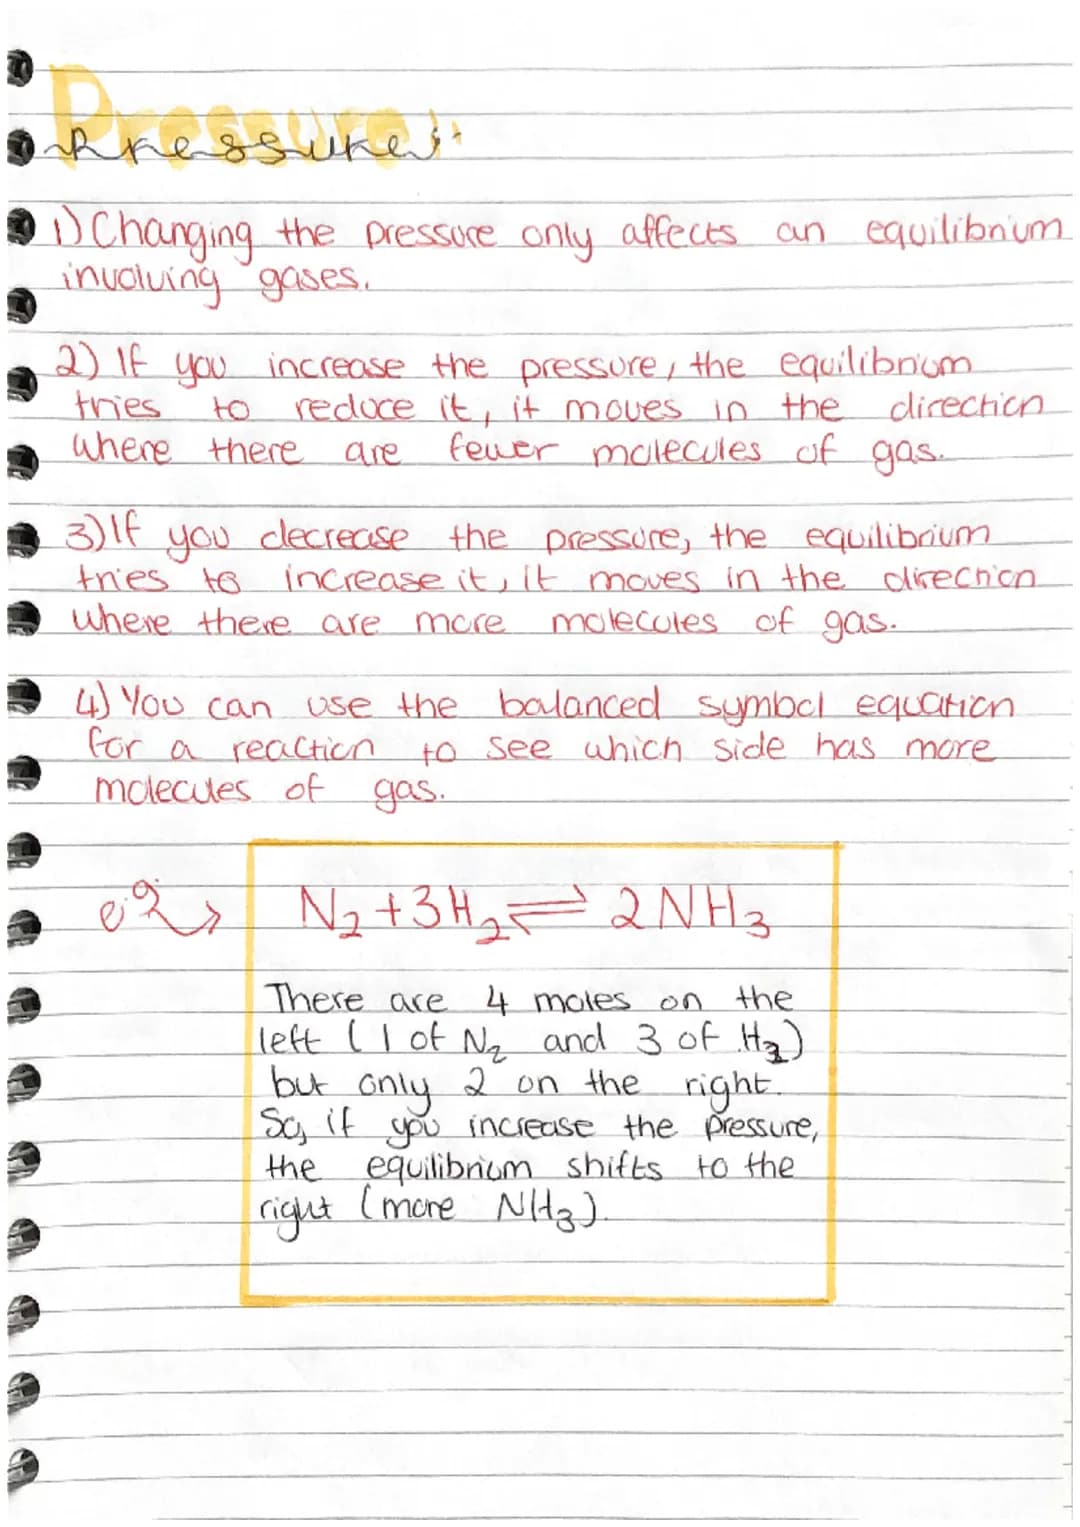 Pressure:
1) Changing the pressure only affects an equilibrium
involving gases.
2) If you increase the pressure, the equilibrium
tries to reduce it, it moves in the direction
where there are fewer molecules of gas.
3) If you decrease the pressure, the equilibrium
tries to increase it, it moves in the direction
where there are more molecules of gas.
4) You can use the balanced symbol equation
for a reaction to see which side has more
molecules of gas.
eg → N₂ + 3H₂ ⇌ 2NH₃
There are 4 moles on the
left (1 of N₂ and 3 of H₂)
but only 2 on the right.
So, if you increase the pressure,
the equilibrium shifts to the
right (more NH₃).